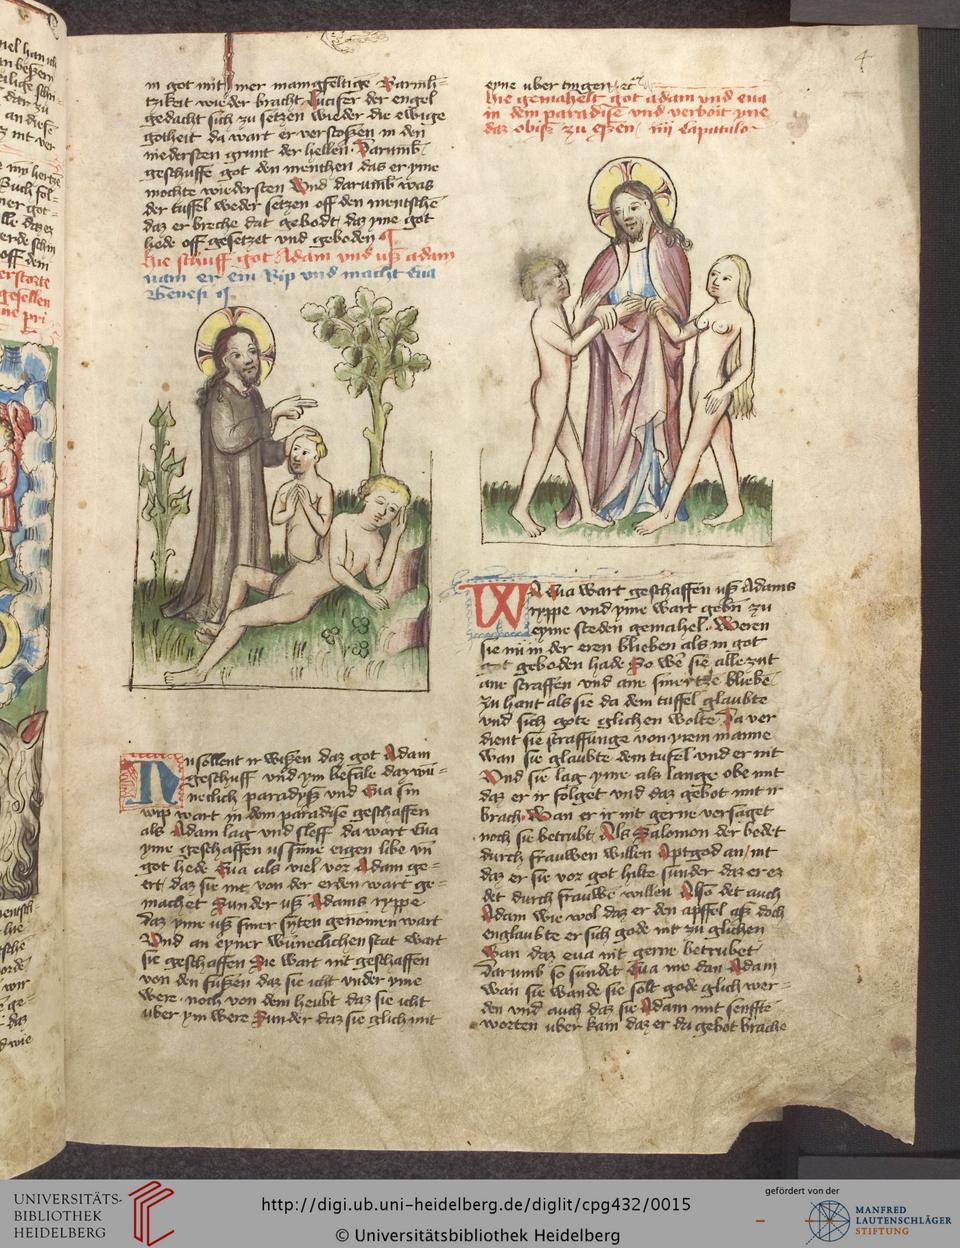 4
in got mit ymer mangfeltige Barmh-
tzikeit wieder bracht Lucifer der engel
gedacht sich zu setzen wieder die ewige
gotheit da wart er verstoßen in den
niedersten grunt der hellen Darumb
geschuffe got den menschen das er yme
mochte wiedersten Vnd darumb was
der tuffel weder setzen off den mentsche
daz er breche dat gebodt daz yme got
hede off gesetzet vnd geboden
hie schuff got Adam vnd vß adam
nam er ein Rip vnd macht Eua
Genesi
Nu sollent ir wißen daz got Adam
geschuff vnd ym befale daz wu-
neclich paradyß vnd Eua sin
wip wart in dem paradise geschaffen
als Adam lag vnd sleff da wart Eua
yme geschaffen uß sime eigen libe vn
got hede Eua als viel vor Adam ge-
ert daz sie nit von der erden wart ge-
machet Sunder uß Adams ryppe
daz yme uß siner syten genomen wart
Vnd an eyner wuneclichen stat wart
sie geschaffen Sie wart nit geschaffen
von den fußen daz sie icht vnder yme
were noch von dem heubt daz sie icht
uber ym were Sunder daz sie glich mit
eyne uber
hie gemahelt got adam vnd eua
in dem paradise vnd verboit yme
daz obiß zu eßen iiij Capitulo
Wa Eua wart geschaffen uß Adams
ryppe vnd yme wart gebn zu
eyme steden gemahel Weren
sie nu in der eren blieben als in got
got geboden hade So wen sie alle zyt
ane straffen vnd ane smertze bliebe
zu hant als sie da dem tuffel glaubte
vnd sich gote glichen wolte Da ver
dient sie straffunge von yrem manne
wan sie glaubte dem tufel vnd er nit
Vnd sie lag yme als lange obe mit
daz er ir folget vnd daz gebot mit ir
brach Wan er ir nit gerne versaget
noch sie betrubt Als Salomon der bedet
durch frauwen willen Aptgod an nit
daz er sie vor got hilte sunder daz er ez
det durch frauwen willen Also det auch
Adam wie wol daz er den apffel aß doch
englaubte er sich gode nit zu glichen
Wan daz eua nit gerne betrubet
Darumb so sundet Eua me dan Adam
wan sie wande sie solt gode glich wer-
den vnd auch daz sie Adam mit senffte
worten uber kam daz er da gebot brache
UNIVERSITÄTS-
BIBLIOTHEK
HEIDELBERG
http://digi.ub.uni-heidelberg.de/diglit/cpg432/0015
© Universitätsbibliothek Heidelberg
gefördert von der
MANFRED
LAUTENSCHLÄGER
STIFTUNG